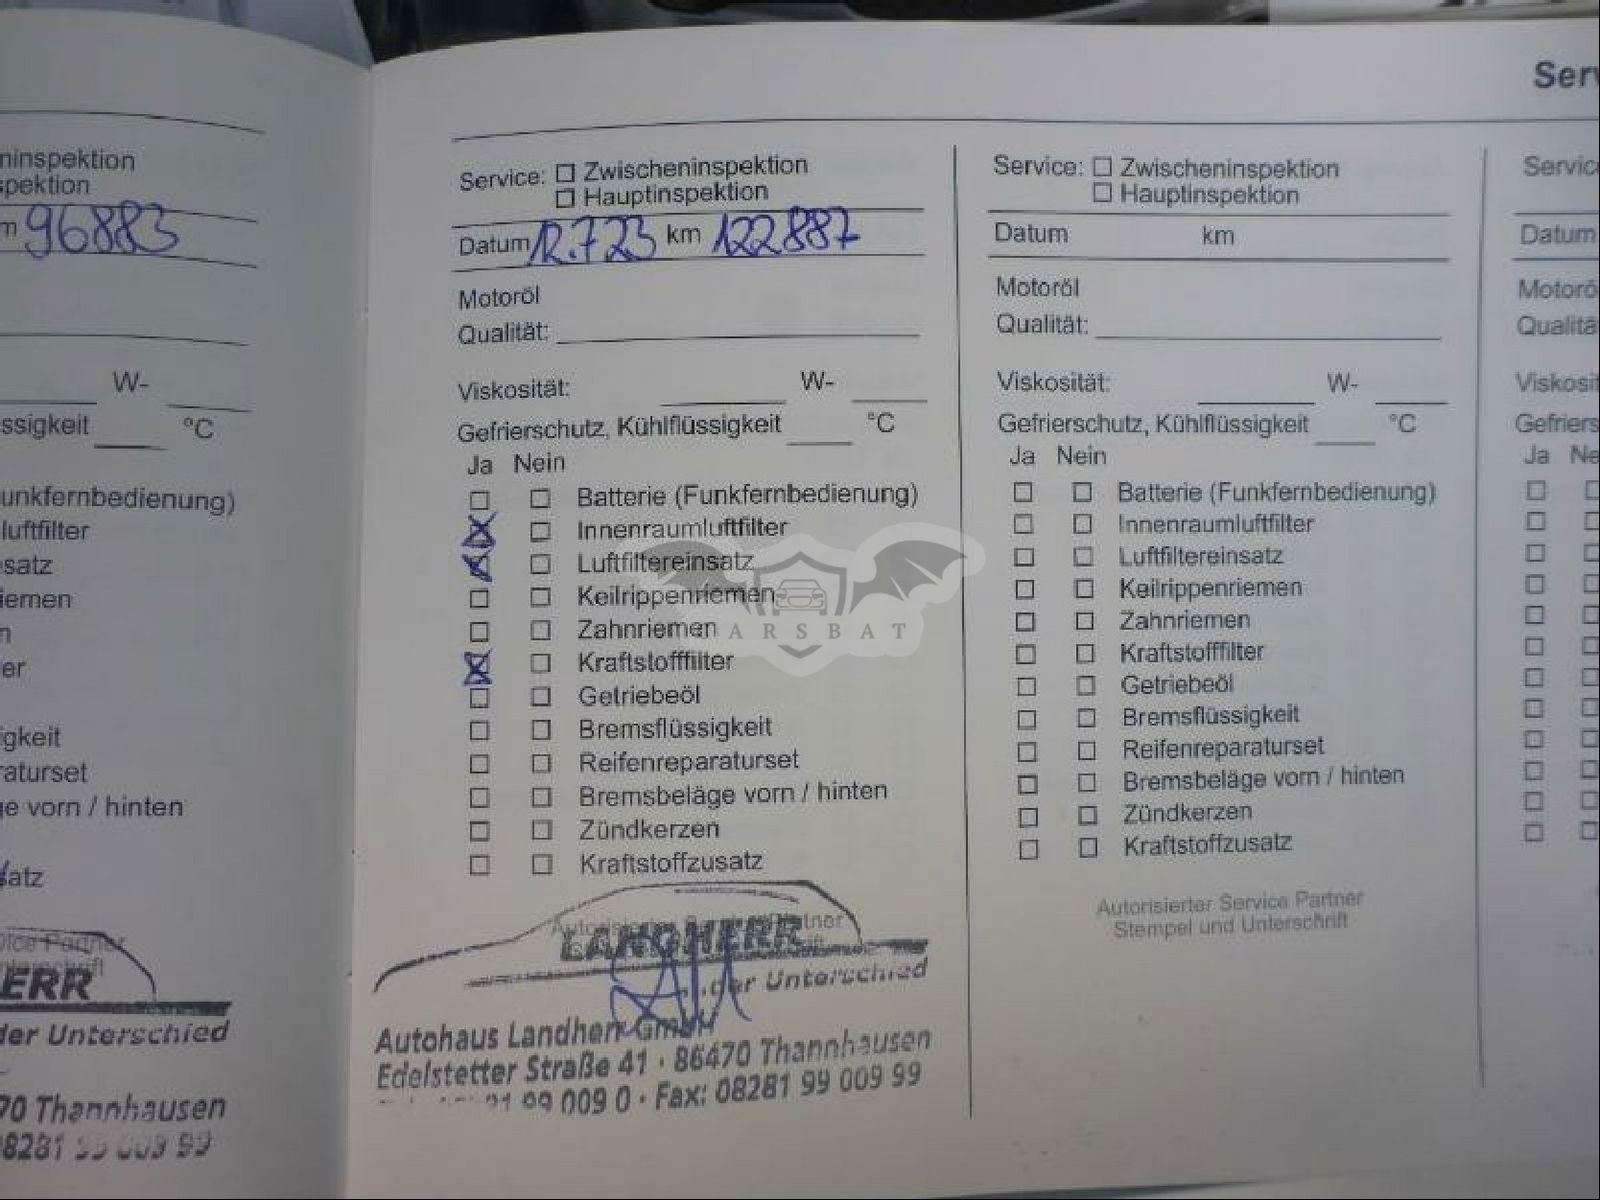 Serv
ninspektion
spektion
m 96883
W-
ssigkeit °C
unkfernbedienung)
luftfilter
satz
iemen
n
er
gkeit
raturset
ge vorn / hinten
satz
vice Partner
ERR
der Unterschied
70 Thannhausen
8281 99 009 99
Service: Zwischeninspektion
Hauptinspektion
Datum 12.7.23 km 122887
Motoröl
Qualität:
Viskosität: W-
Gefrierschutz, Kühlflüssigkeit °C
Ja Nein
Batterie (Funkfernbedienung)
Innenraumluftfilter
Luftfiltereinsatz
Keilrippenriemen
Zahnriemen
Kraftstofffilter
Getriebeöl
Bremsflüssigkeit
Reifenreparaturset
Bremsbeläge vorn / hinten
Zündkerzen
Kraftstoffzusatz
Autorisierter Service Partner
LANDHERR
...der Unterschied
Autohaus Landherr GmbH
Edelstetter Straße 41 · 86470 Thannhausen
99 009 0 · Fax: 08281 99 009 99
ARSBAT
Service: Zwischeninspektion
Hauptinspektion
Datum km
Motoröl
Qualität:
Viskosität: W-
Gefrierschutz, Kühlflüssigkeit °C
Ja Nein
Batterie (Funkfernbedienung)
Innenraumluftfilter
Luftfiltereinsatz
Keilrippenriemen
Zahnriemen
Kraftstofffilter
Getriebeöl
Bremsflüssigkeit
Reifenreparaturset
Bremsbeläge vorn / hinten
Zündkerzen
Kraftstoffzusatz
Autorisierter Service Partner
Stempel und Unterschrift
Servic
Datum
Motorö
Qualitä
Viskosit
Gefriers
Ja Ne